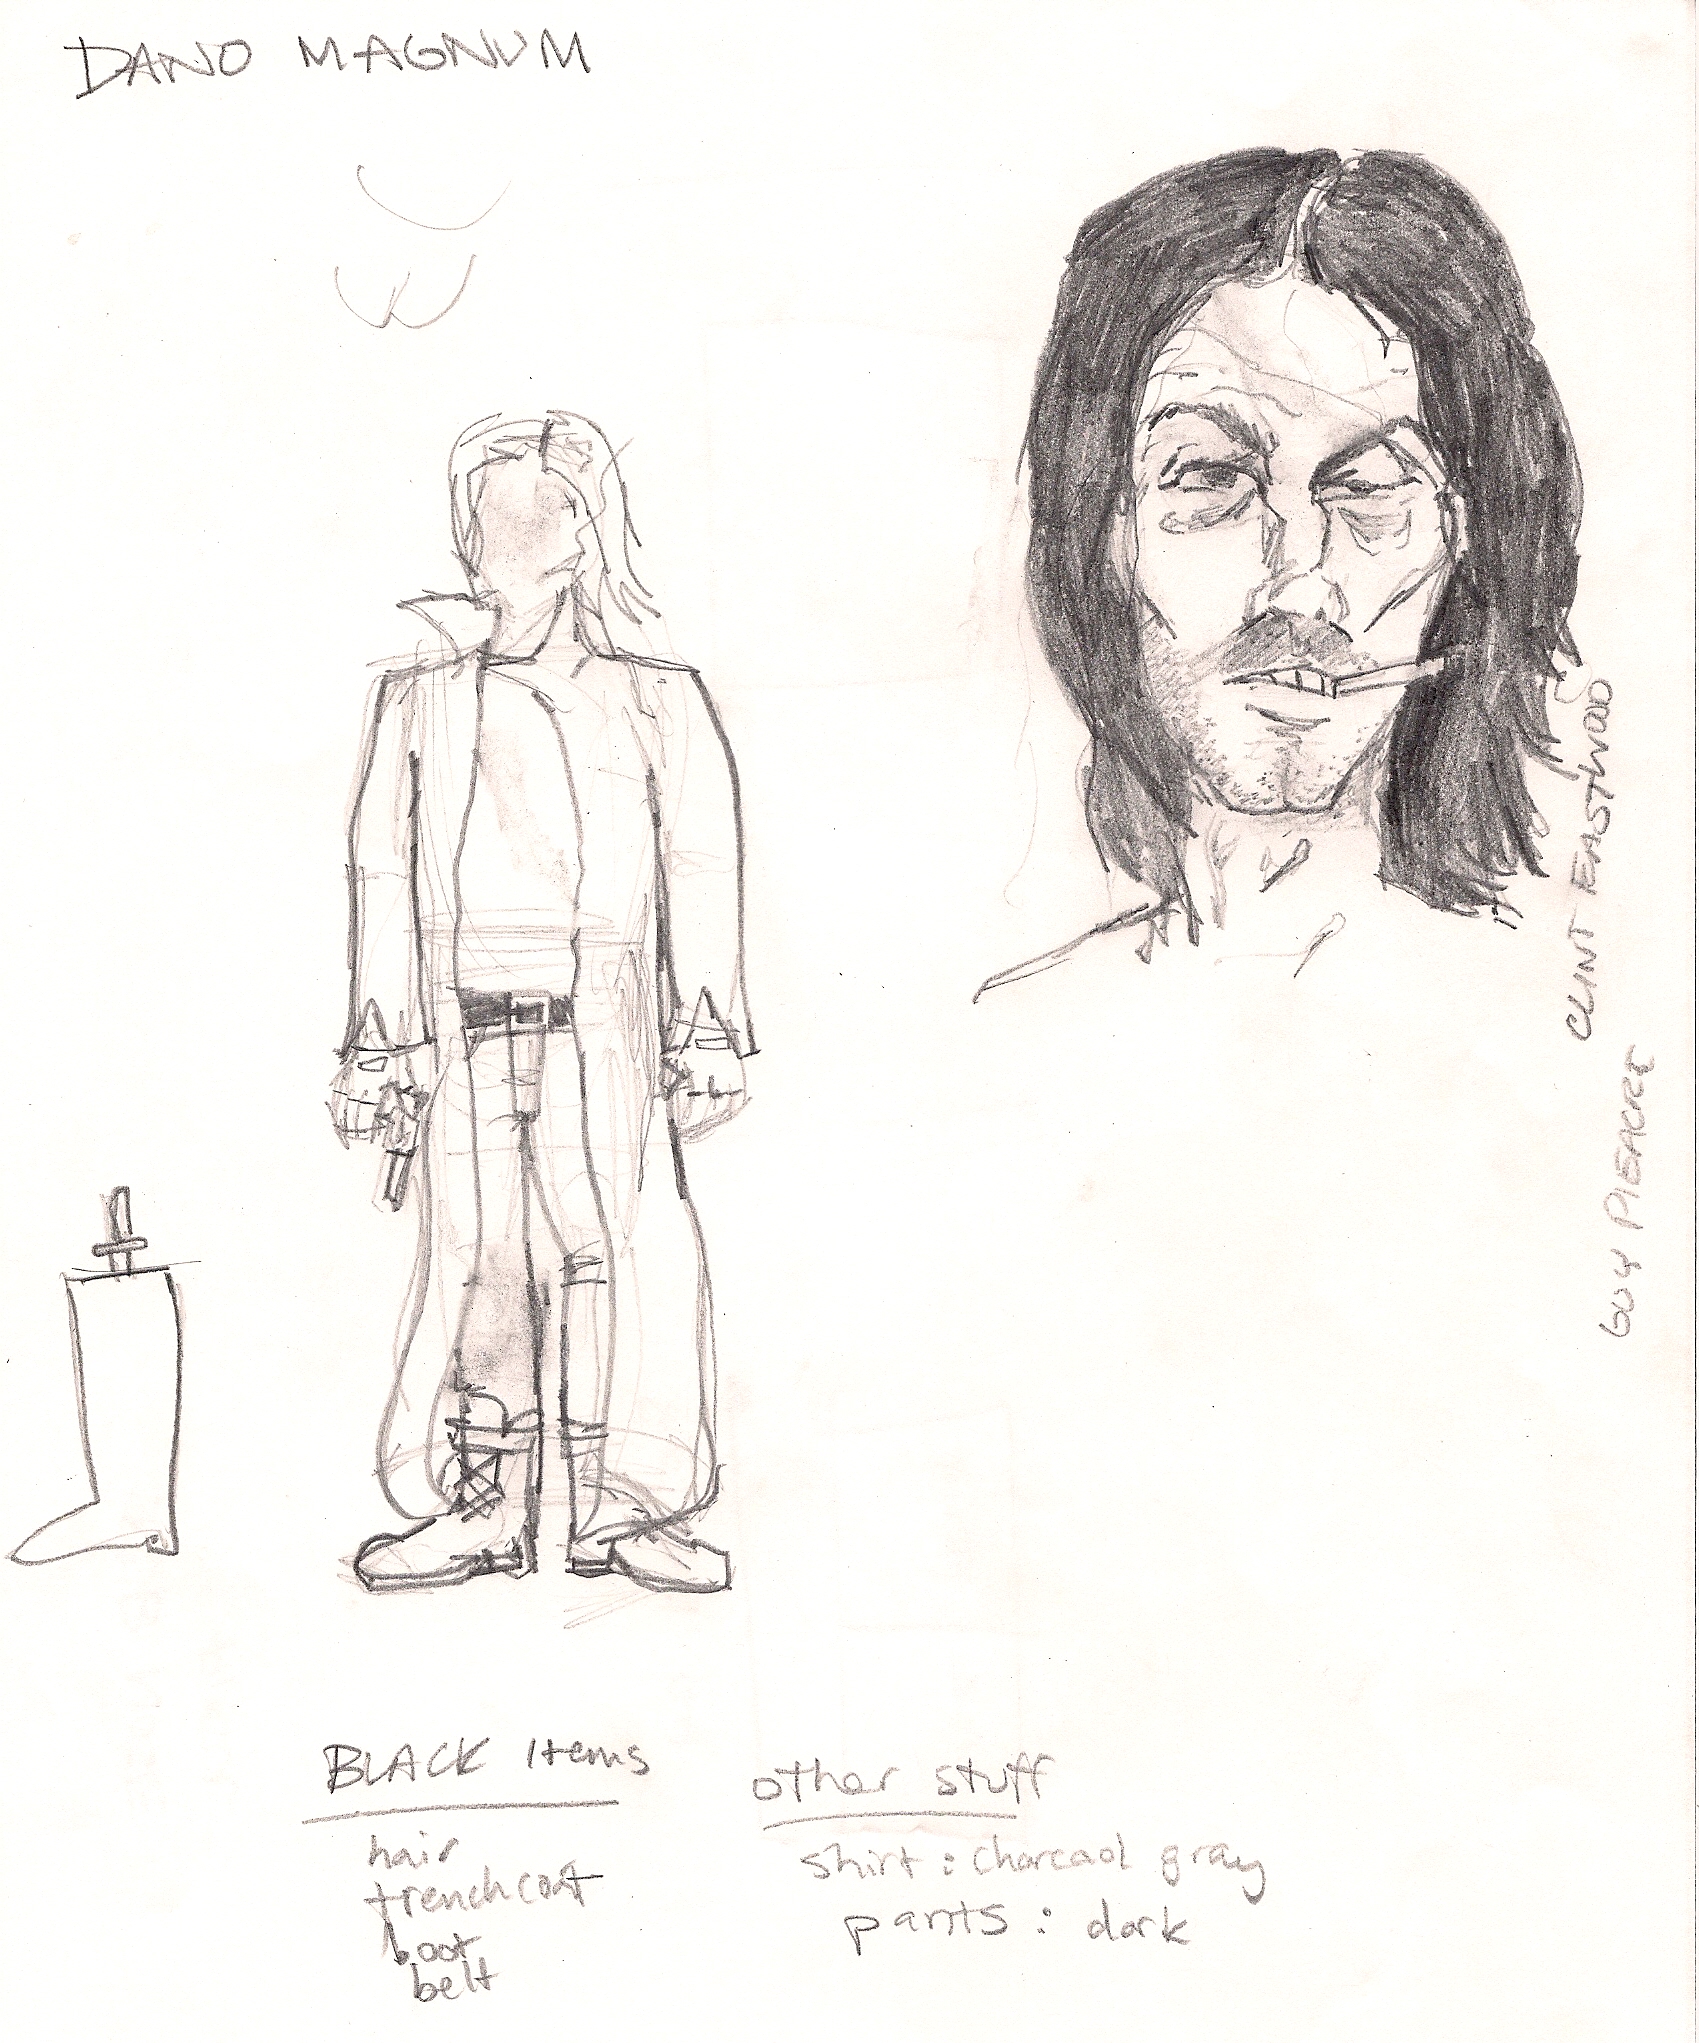 DANO MAGNUM
CLINT EASTWOOD
GUY PIEACRE
BLACK Items
hair
trenchcoat
boot
belt
other stuff
shirt: charcaol gray
pants: dark